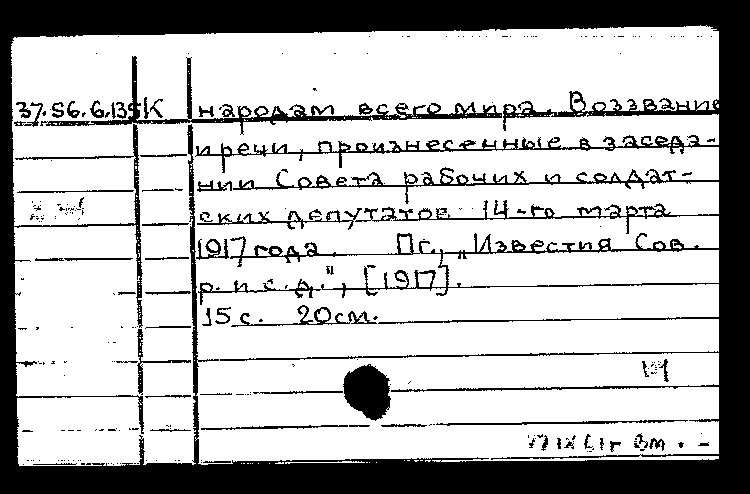 37.56.6.135 К народам всего мира. Воззвание
и речи, произнесенные в заседа-
нии Совета рабочих и солдат-
ских депутатов 14-го марта
1917 года. Пг., „Известия Сов.
р. и с. д.", [1917].
15 с. 20 см.